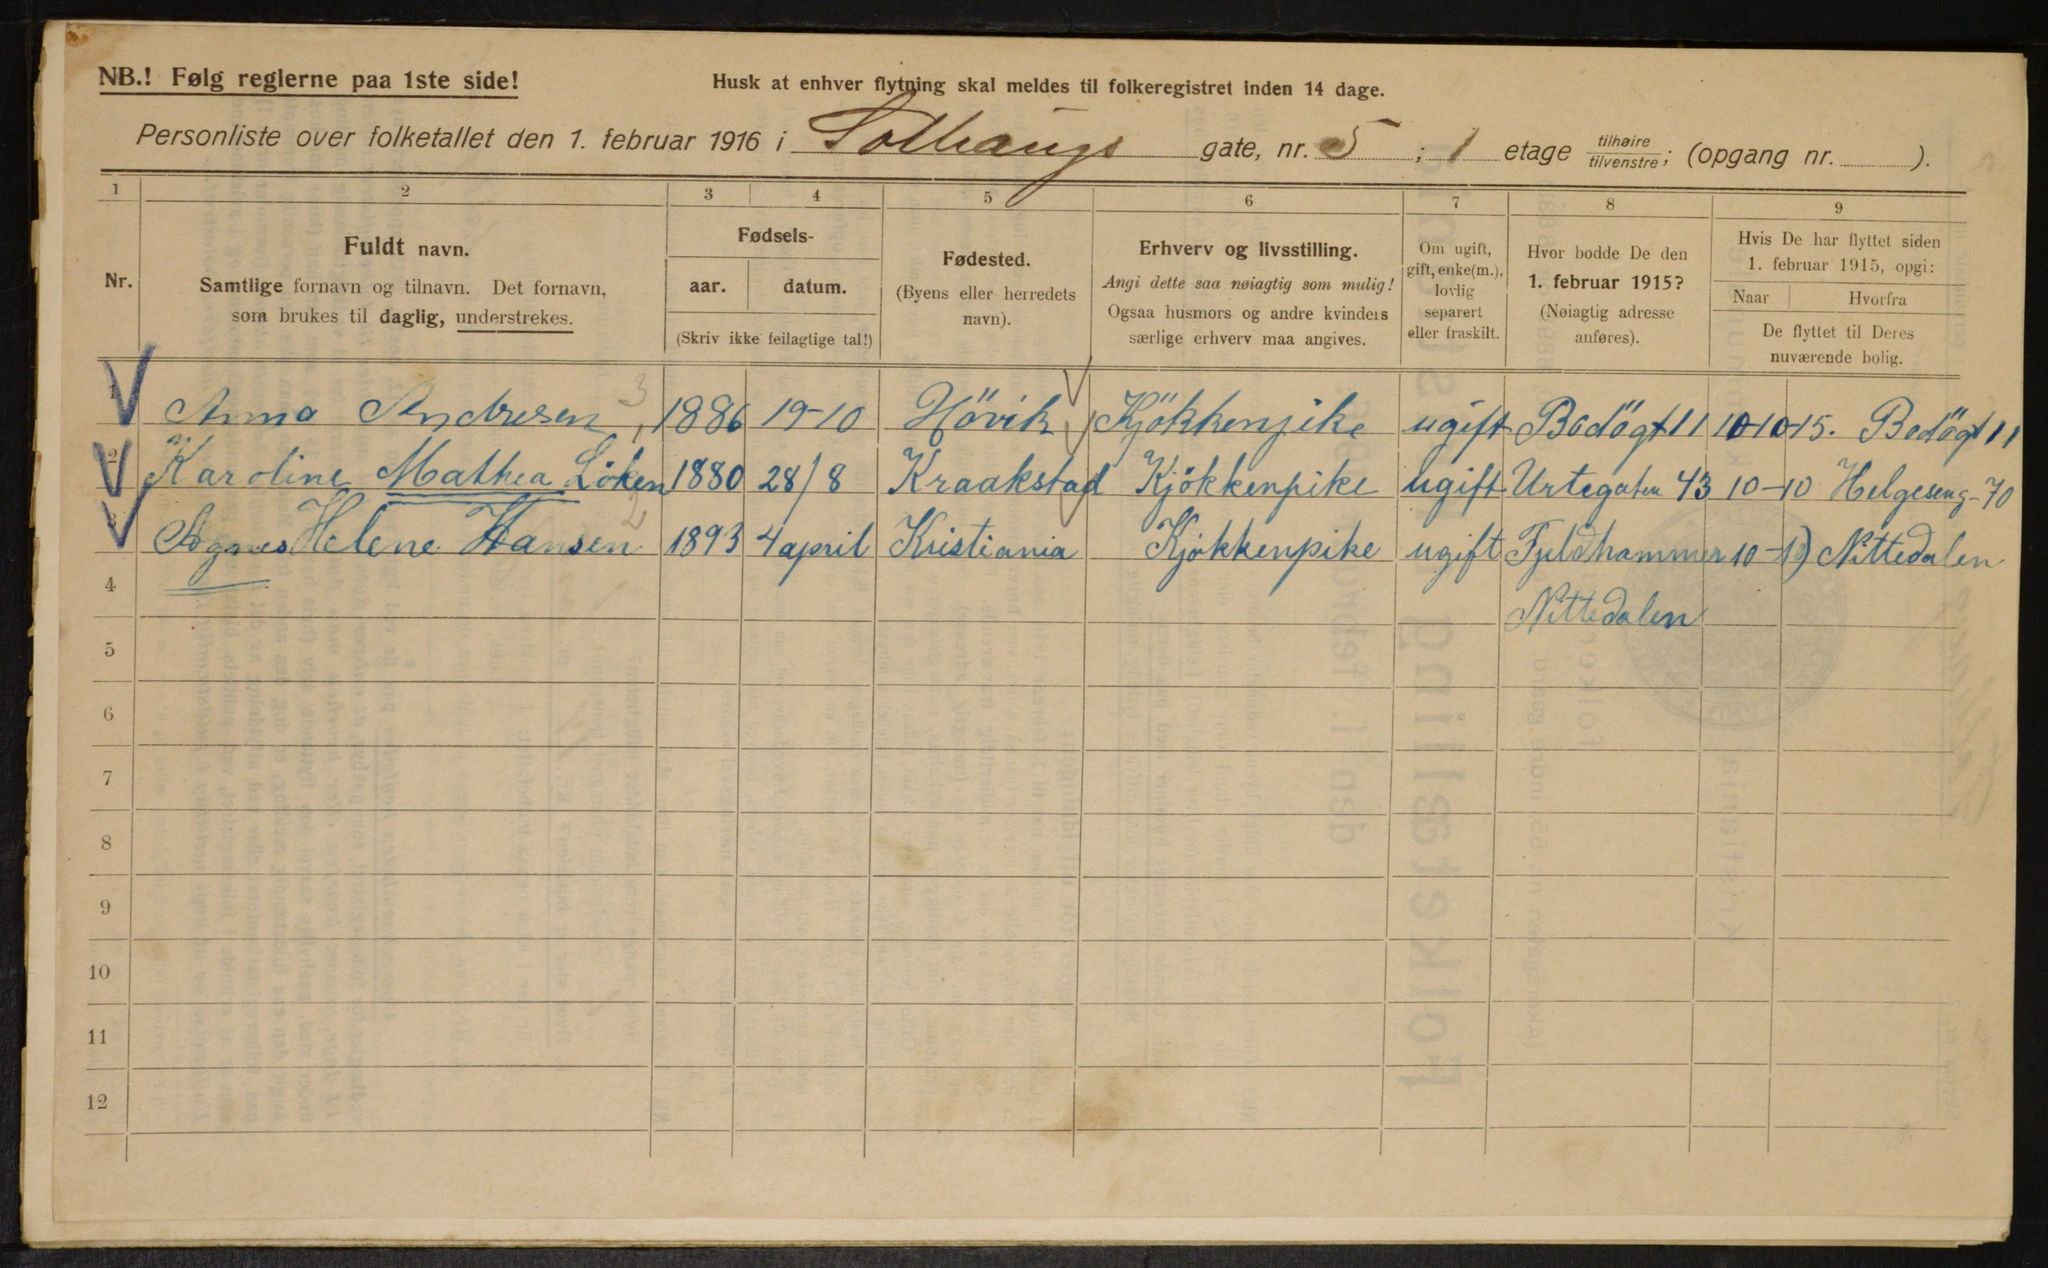 NB.! Følg reglerne paa 1ste side!
Husk at enhver flytning skal meldes til folkeregistret inden 14 dage.
Personliste over folketallet den 1. februar 1916 i Solhaugs gate, nr. 5 ; 1 etage tilhøire/tilvenstre; (opgang nr. ).
1 2 3 4 5 6 7 8 9
Nr.
Fuldt navn.
Samtlige fornavn og tilnavn. Det fornavn,
som brukes til daglig, understrekes.
Fødsels-
aar. datum.
(Skriv ikke feilagtige tal!)
Fødested.
(Byens eller herredets
navn).
Erhverv og livsstilling.
Angi dette saa nøiagtig som mulig!
Ogsaa husmors og andre kvinders
særlige erhverv maa angives.
Om ugift,
gift, enke(m.),
lovlig
separert
eller fraskilt.
Hvor bodde De den
1. februar 1915?
(Nøiagtig adresse
anføres).
Hvis De har flyttet siden
1. februar 1915, opgi:
Naar Hvorfra
De flyttet til Deres
nuværende bolig.
1 Anna Andresen 3 1886 19-10 Hövik Kjökkenpike ugift Bodögt 11 10-10-15. Bodögt 11
2 Karoline Mathea Löken 1880 28/8 Kraakstad Kjökkenpike ugift Urtegaten 43 10-10 Helgeseng-70
3 Agnes Helene Hansen 2 1893 4 april Kristiania Kjökkenpike ugift Fjeldhammer 10-10 Nittedalen
4 Nittedalen
5
6
7
8
9
10
11
12